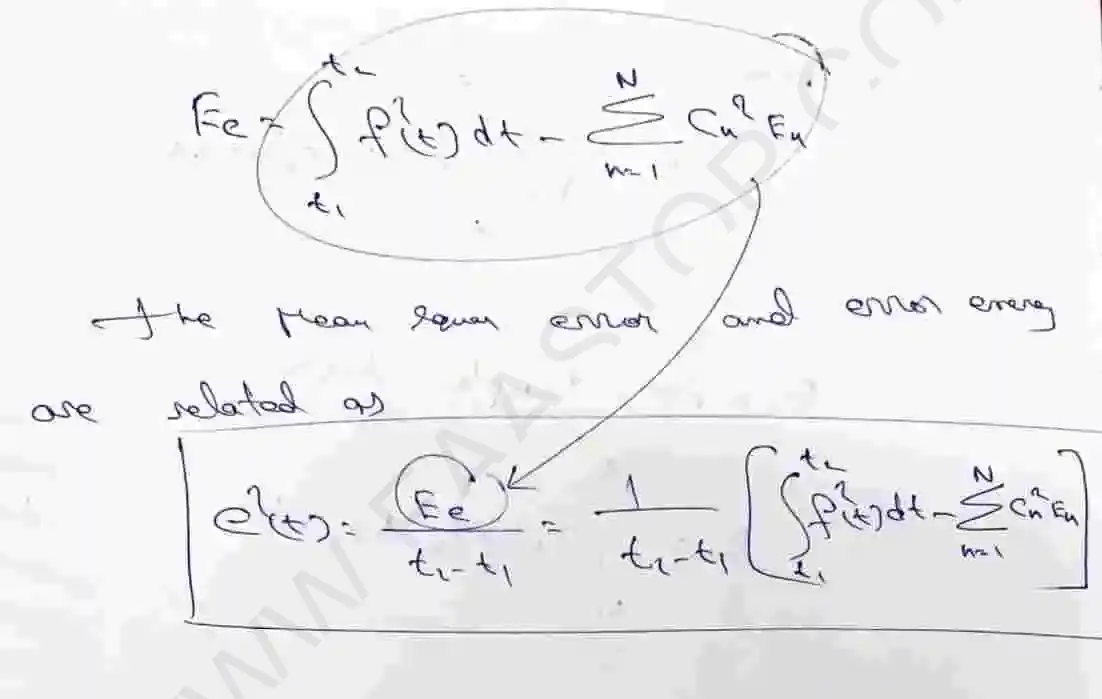 Ee = ∫_{t₁}^{t₂} f²(t) dt - ∑_{n=1}^{N} Cn² En
The Mean square error and error energy
are related as
e²(t) = Ee / (t₂-t₁) = 1 / (t₂-t₁) [ ∫_{t₁}^{t₂} f²(t) dt - ∑_{n=1}^{N} Cn² En ]